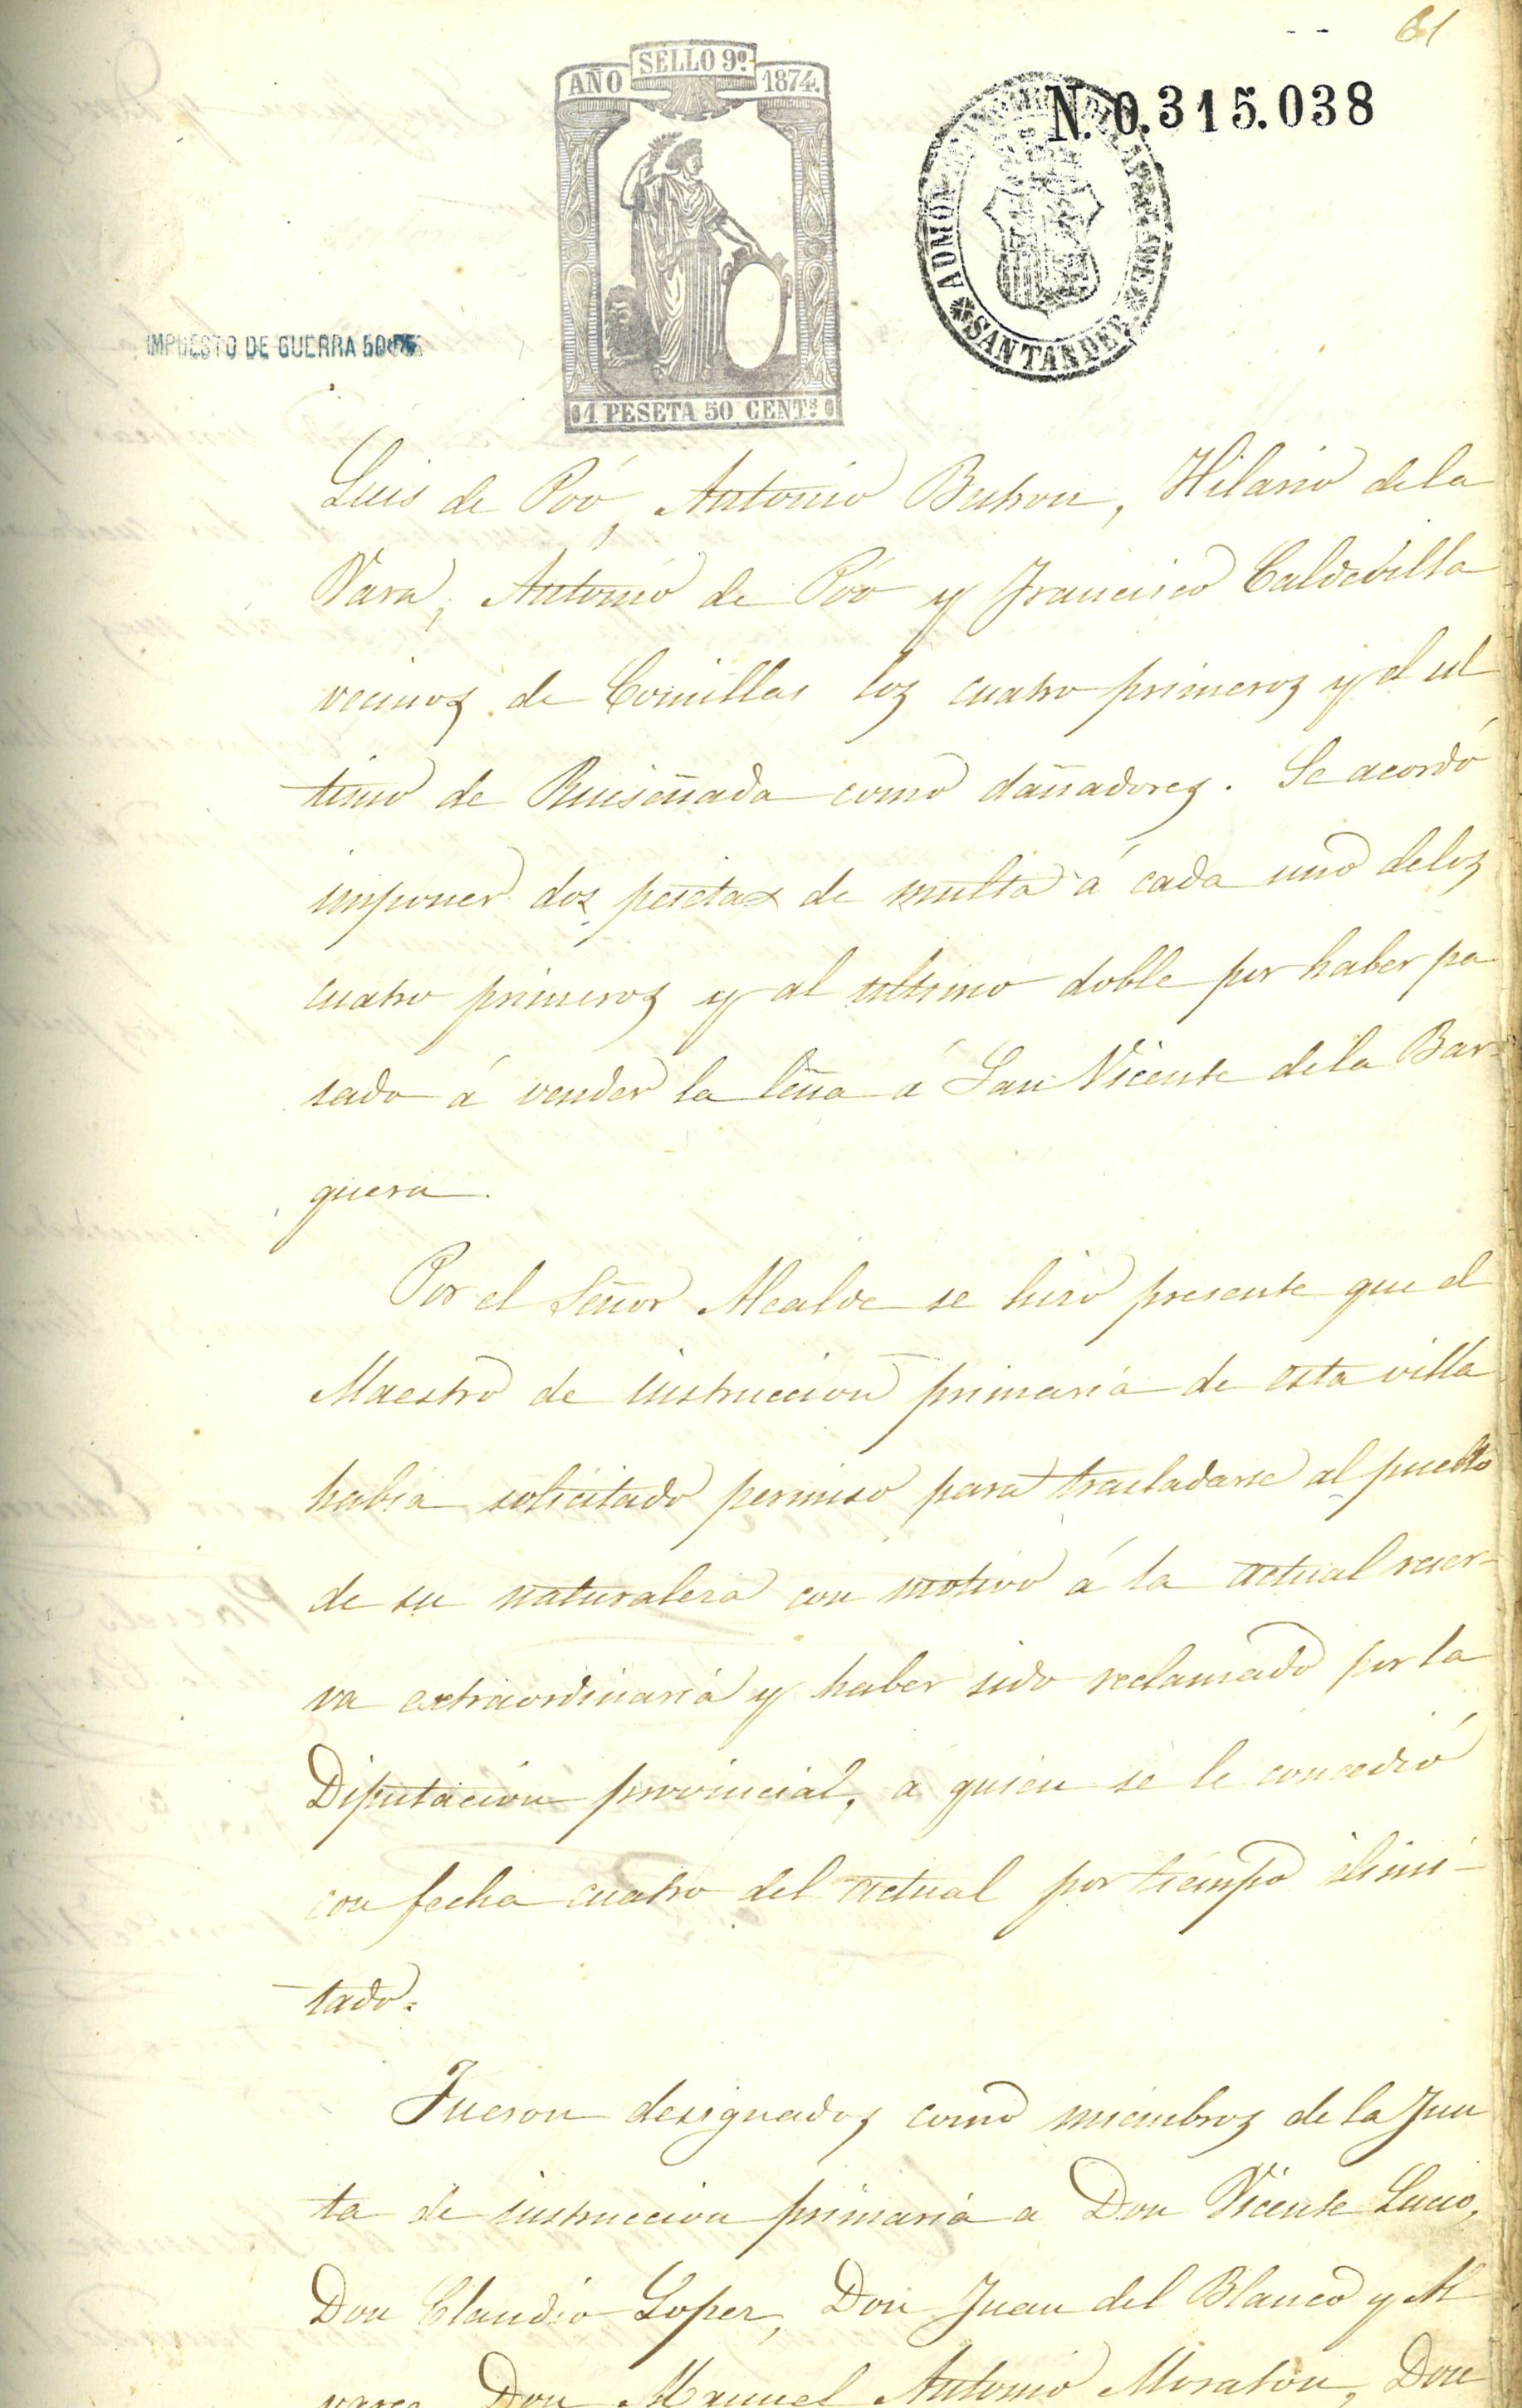 61
AÑO SELLO 9º 1874.
N. 0.315.038
ADMON
SANTANDER
IMPUESTO DE GUERRA 50
1 PESETA 50 CENTS
Luis de Póo, Antonio Butron, Hilario de la
Vara, Antonio de Póo y Francisco Caldevilla
vecinos de Comillas los cuatro primeros y el ul
timo de Ruiseñada como dañadores. Se acordó
imponer dos pesetas de multa á cada uno delos
cuatro primeros y al ultimo doble por haber pa
sado á vender la leña á San Vicente dela Bar-
quera.
Por el Señor Alcalde se hizo presente que el
Maestro de instruccion primaria de esta villa
habia solicitado permiso para trasladarse al pueblo
de su naturaleza con motivo á la actual reser-
va extraordinaria y haber sido reclamado por la
Diputacion provincial, a quien se le concedió
con fecha cuatro del actual por tiempo ilimi-
tado.
Fueron designados como miembros de la Jun
ta de instruccion primaria a Don Vicente Lucio,
Don Claudio Lopez, Don Juan del Blanco y Al
varez, Don Manuel Antonio Moraton, Don